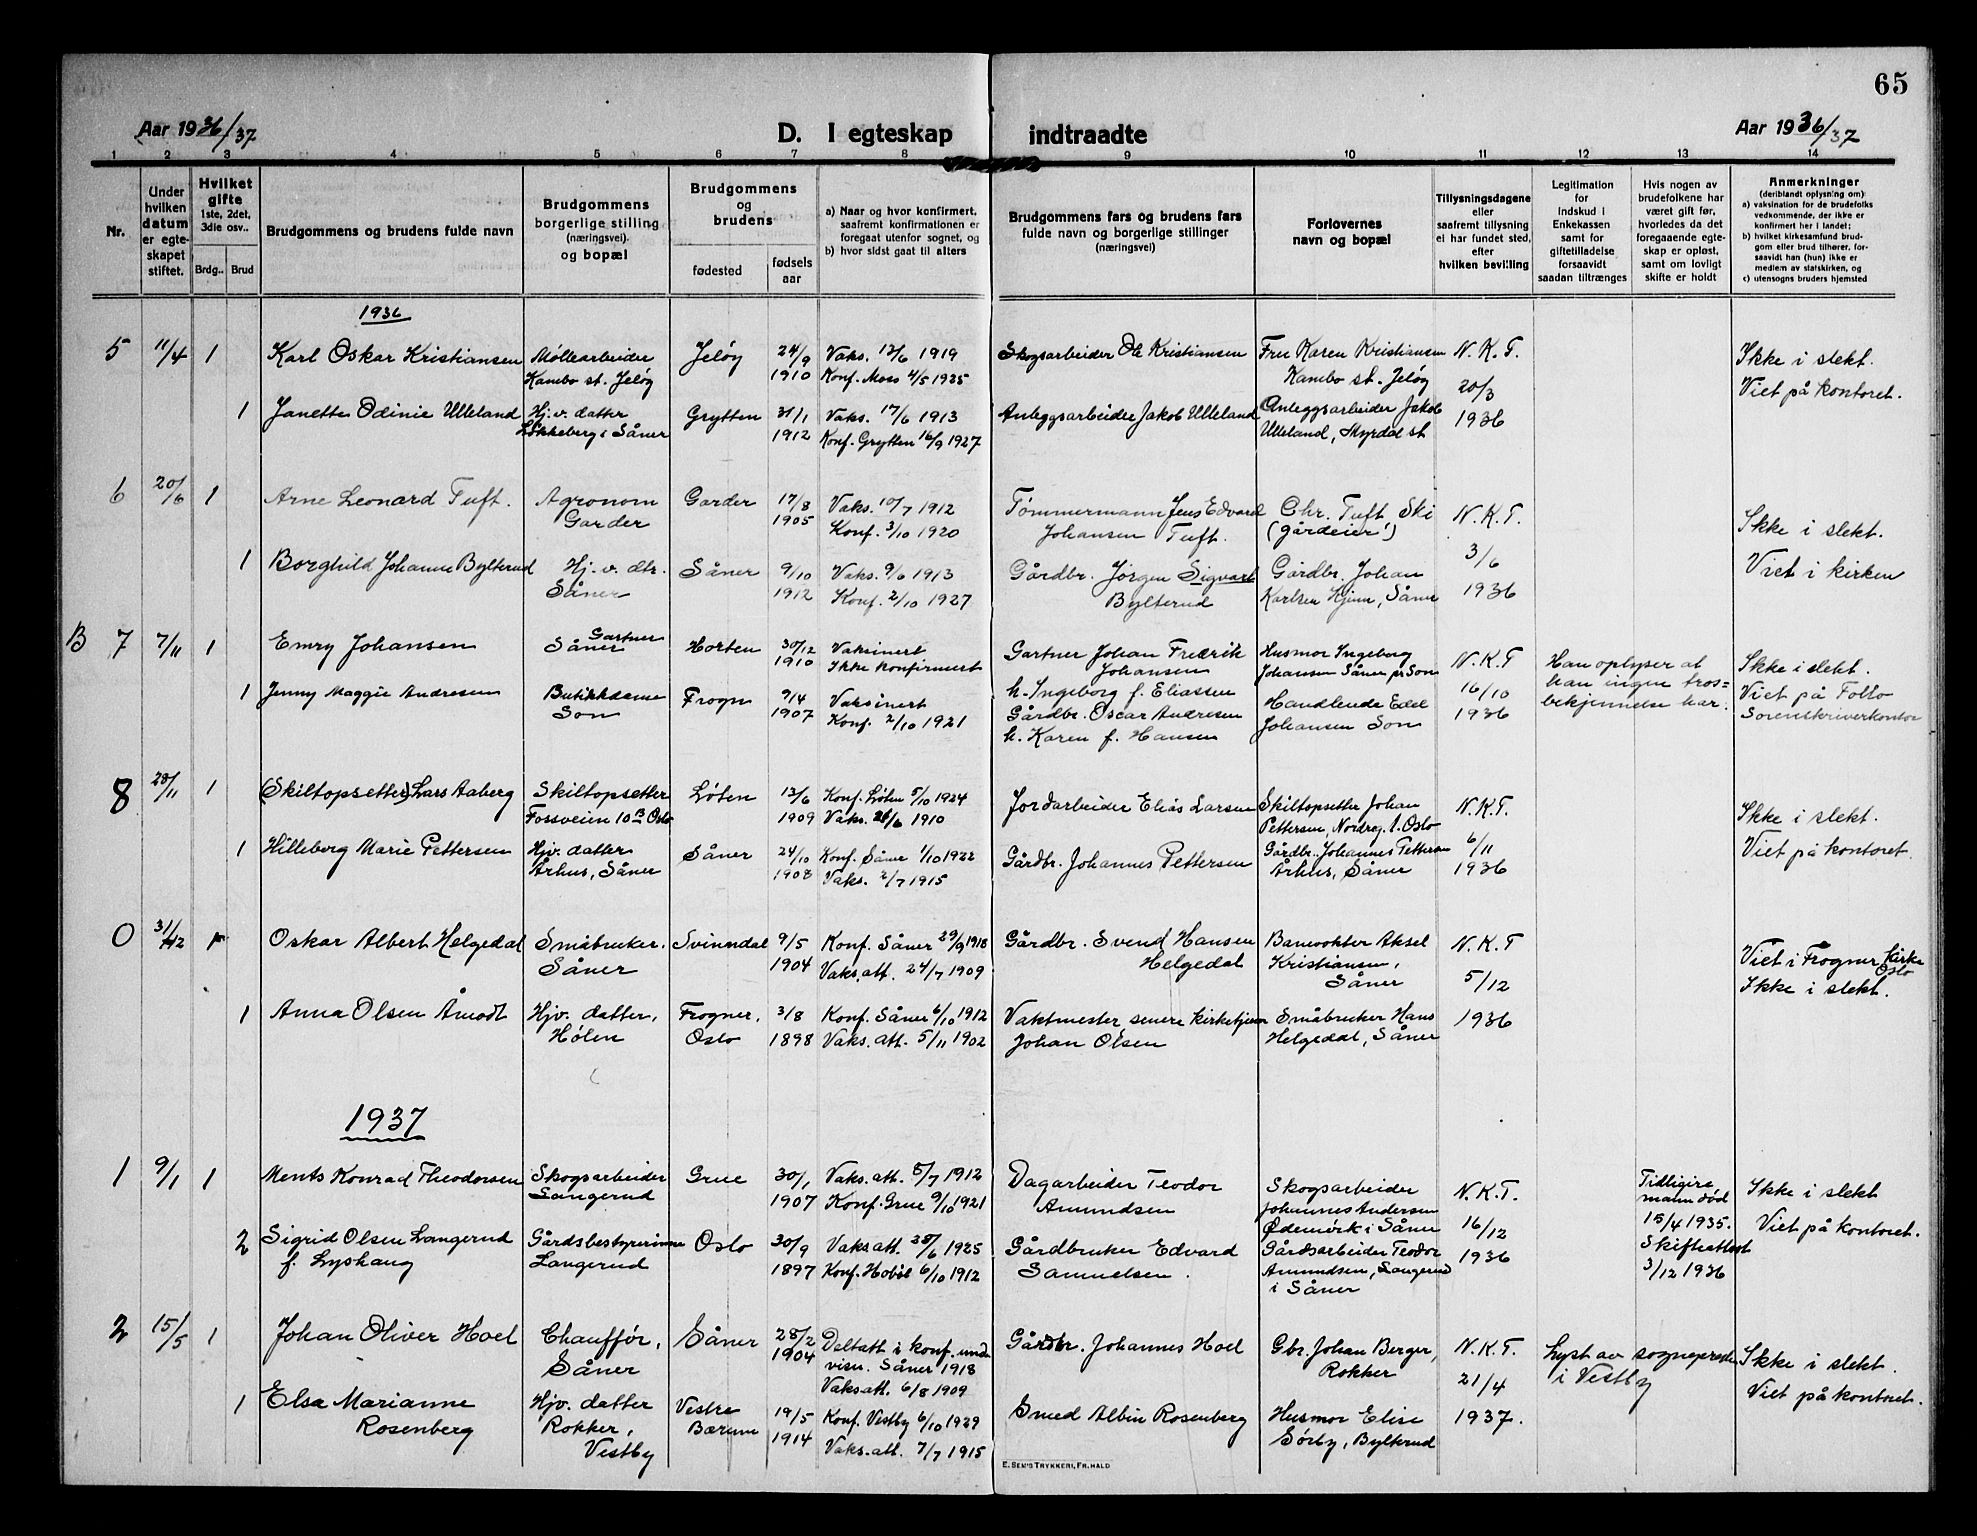 65
Aar 1936/37
D. I egteskap indtraadte
Aar 1936/37
1 2 3 4 5 6 7 8 9 10 11 12 13 14
Nr.
Under hvilken datum er egteskapet stiftet.
Hvilket gifte
1ste, 2det, 3die osv..
Brdg.. Brud
Brudgommens og brudens fulde navn
Brudgommens borgerlige stilling (næringsvei) og bopæl
Brudgommens og brudens
fødested
fødselsaar
a) Naar og hvor konfirmert, saafremt konfirmationen er foregaat utenfor sognet, og
b) hvor sidst gaat til alters
Brudgommens fars og brudens fars fulde navn og borgerlige stillinger (næringsvei)
Forlovernes navn og bopæl
Tillysningsdagene eller saafremt tillysning ei har fundet sted, efter hvilken bevilling
Legitimation for Indskud i Enkekassen samt for giftetilladelse forsaavidt saadan tiltrænges
Hvis nogen av brudefolkene har været gift før, hvorledes da det foregaaende egteskap er opløst, samt om lovligt skifte er holdt
Anmerkninger
(deriblandt oplysning om)
a) vaksination for de brudefolks vedkommende, der ikke er konfirmert her i landet;
b) hvilket kirkesamfund brudgom eller brud tilhører, forsaavidt han (hun) ikke er medlem av statskirken, og
c) utensogns bruders hjemsted
1936
5 11/4 1 Karl Oskar Kristiansen Møllearbeider Jeløy 24/9 Vaks. 12/6 1919 Skogsarbeider Ole Kristiansen Fru Karen Kristiansen N.K.T. Ikke i slekt.
Kambo st. Jeløy 1910 Konf. Moss 4/5 1925 Kambo st. Jeløy 20/3 Viet på kontoret.
1 Janette Odinie Ulleland Hj.v. datter Grytten 31/1 Vaks. 17/6 1913 Anleggsarbeider Jakob Ulleland Anleggsarbeider Jakob 1936
Løkkeberg i Såner 1912 Konf. Grytten 16/9 1927 Ulleland, Myrdal st
6 20/6 1 Arne Leonard Tuft. Agronom Garder 17/8 Vaks. 10/7 1912 Tømmermann Jens Edvard Chr. Tuft Ski N.K.T. Ikke i slekt.
Garder 1905 Konf. 3/10 1920 Johansen Tuft. (gårdeier)
1 Borghild Johanne Bylterud Hj.v. dtr. Såner 9/10 Vaks. 9/6 1913 Gårdbr. Jørgen Sigvart Gårdbr. Johan 3/6 Viet i kirken
Såner 1912 Konf. 2/10 1927 Bylterud Karlsen Hjem, Såner 1936
B 7 7/11 1 Emry Johansen Gartner Såner Horten 30/12 Vaksinert Gartner Johan Fredrik Husmor Ingeborg N.K.T Han oplyser at Ikke i slekt.
1910 Ikke konfirmert Johansen Johansen Såner pr Son han ingen tros=
1 Jenny Maggie Andresen Butikkdame Frogn 9/4 Vaksinert h. Ingeborg f. Eliassen Handlende Edel 16/10 bekjennelse har. Viet på Follo
Son 1907 Konf. 2/10 1921 Gårdbr. Oscar Andresen Johansen Son 1936 Sorenskriverkontor
h. Karen f. Hansen
8 28/11 1 (Skiltopsetter) Lars Aaberg Skiltopsetter Løten 13/6 Konf. Løten 5/10 1924 Jordarbeider Elias Larsen Skiltopsetter Johan N.K.T. Ikke i slekt.
Fossveien 10B Oslo 1909 Vaks. 26/6 1910 Pettersen, Nordreg. 1. Oslo
1 Hilleborg Marie Pettersen Hjv. datter Såner 24/10 Konf. Såner 1/10 1922 Gårdbr. Johannes Pettersen Gårdbr. Johannes Pettersen 6/11 Viet på kontoret.
Århus, Såner 1908 Vaks. 2/7 1915 Århus, Såner 1936
0 31/12 1 Oskar Albert Helgedal Småbruker. Svinndal 9/5 Konf. Såner 29/9 1918 Gårdbr. Svend Hansen Banevokter Aksel N.K.T Viet i Frogner Kirke
Såner 1904 Vaks. att. 24/7 1909 Helgedal Kristiansen, Såner 5/12 Oslo
Ikke i slekt.
1 Anna Olsen Åmodt Hjv. datter, Frogner, 3/8 Konf. Såner 6/10 1912 Vaktmester, senere kirketjener Småbruker Hans 1936
Hølen Oslo 1898 Vaks. att. 5/11 1902 Johan Olsen Helgedal, Såner
1937
1 9/1 1 Ments Konrad Theodorsen Skogsarbeider Grue 30/1 Vaks. att. 5/7 1912 Dagarbeider Teodor Skogsarbeider N.K.T. Tidligere Ikke i slekt
Langerud 1907 Konf. Grue 9/10 1921 Amundsen Johannes Andersen mann død
Ødemørk i Såner 16/12 15/4 1935. Viet på kontoret.
2 Sigrid Olsen Langerud Gårdsbestyrerinne Oslo 30/9 Vaks att. 28/6 1925 Gårdbruker Edvard Gårdsarbeider Teodor 1936 Skifteattest
f. Lyshaug Langerud 1897 Konf. Hobøl 6/10 1912 Samuelsen. Amundsen, Langerud 3/12 1936
i Såner
2 15/5 1 Johan Oliver Hoel Chauffør, Såner 28/2 Deltatt i konf. und Gårdbr. Johannes Hoel Gbr. Johan Berger, N.K.T. Lyst av sogneprest Ikke i slekt.
Såner 1904 visn. Såner 1918 Rokker i Vestby
Vaks att. 6/8 1909 21/4 Viet på kontoret.
1 Elsa Marianne Hjv. datter Vestre 19/5 Konf. Vestby 6/10 1929 Smed Albin Rosenberg Husmor Elise 1937.
Rosenberg Rokker, Bærum 1914 Vaks. att. 7/7 1915 Sørby, Bylterud
Vestby
E. SEM'S TRYKKERI, FR.HALD